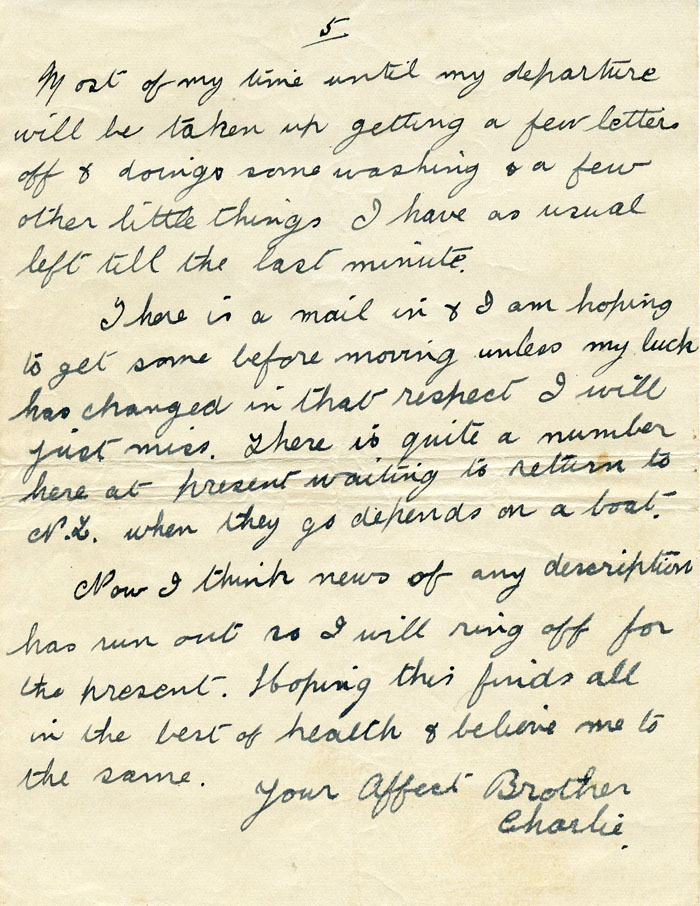 5.
Most of my time until my departure
will be taken up getting a few letters
off & doings some washing & a few
other little things I have as usual
left till the last minute.
There is a mail in & I am hoping
to get some before moving unless my luck
has changed in that respect I will
just miss. There is quite a number
here at present waiting to return to
N.Z. when they go depends on a boat.
Now I think news of any description
has run out so I will ring off for
the present. Hoping this finds all
in the best of health & believe me to
the same.
Your Affect Brother
Charlie.